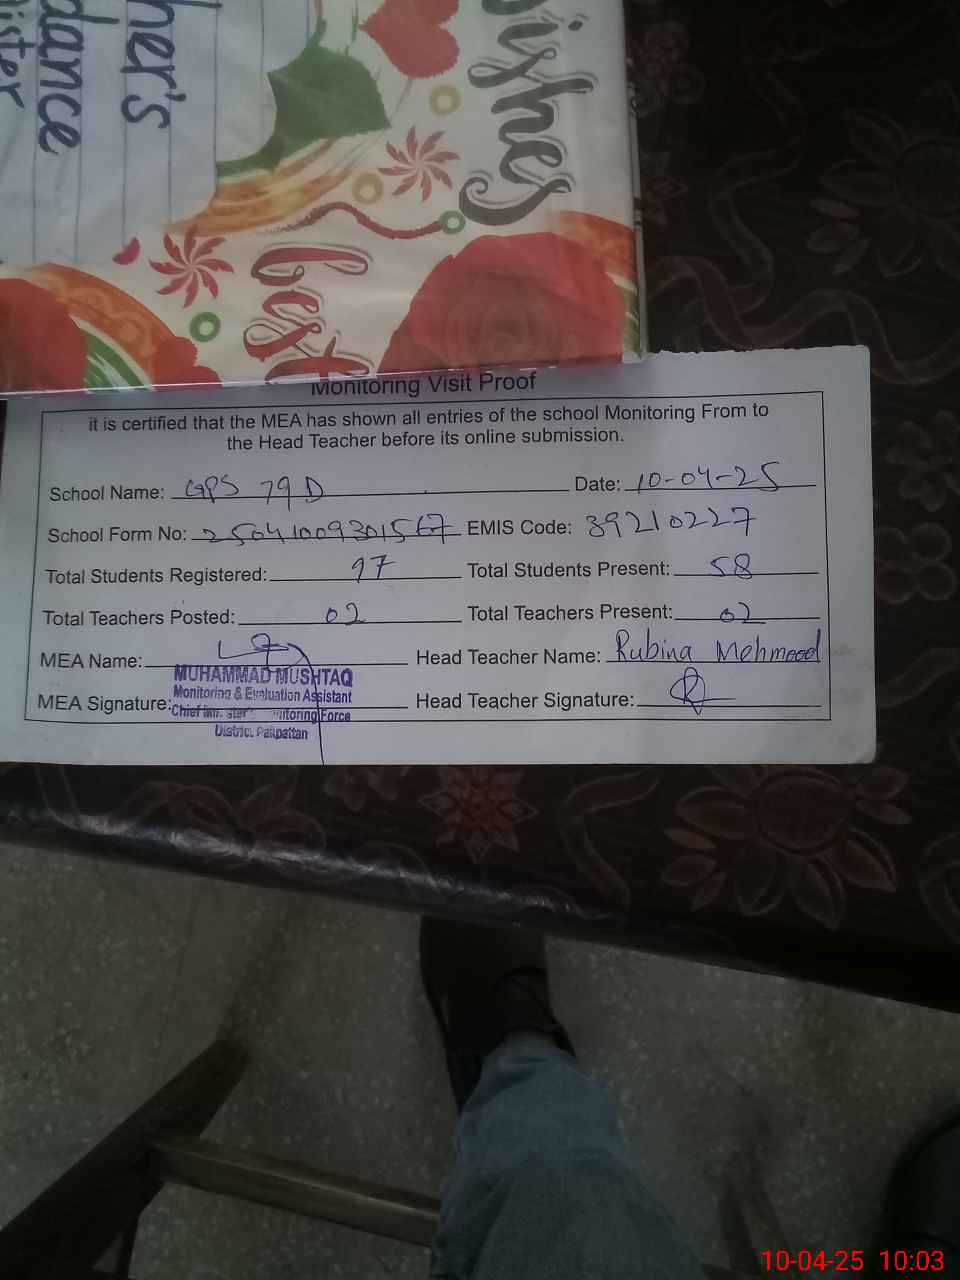 wishes
best
her's
dance
ister
Monitoring Visit Proof
it is certified that the MEA has shown all entries of the school Monitoring From to
the Head Teacher before its online submission.
School Name: GPS 79 D Date: 10-04-25
School Form No: 25041009301567 EMIS Code: 39210227
Total Students Registered: 97 Total Students Present: 58
Total Teachers Posted: 02 Total Teachers Present: 02
MEA Name: Head Teacher Name: Rubina Mehmood
MUHAMMAD MUSHTAQ
Monitoring & Evaluation Assistant
MEA Signature: Head Teacher Signature:
Chief Force
District Pakpattan
10-04-25 10:03